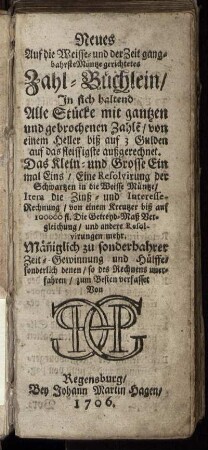 Neues
Auf die Weisse- und der Zeit gang-
bahrste Müntz gerichtetes
Zahl-Büchlein/
In sich haltend
Alle Stücke mit gantzen
und gebrochenen Zahlē/ von
einem Heller biß auf 3 Gulden
auf das fleissigste außgerechnet.
Das Klein- und Grosse Ein
mal Eins/ Eine Resolvirung der
Schwartzen in die Weisse Müntze/
Item die Zinß- und Interesse-
Rechnung/ von einem Kreutzer biß auf
100000 fl. Die Getreyd-Maß Ver-
gleichung/ und andere Resol-
virungen mehr.
Männiglich zu sonderbahrer
Zeit-Gewinnung und Hülffe/
sonderlich denen/ so des Rechnens uner-
fahren/ zum Besten verfasset
Von
Regensburg/
Bey Johann Martin Hagen/
1706.